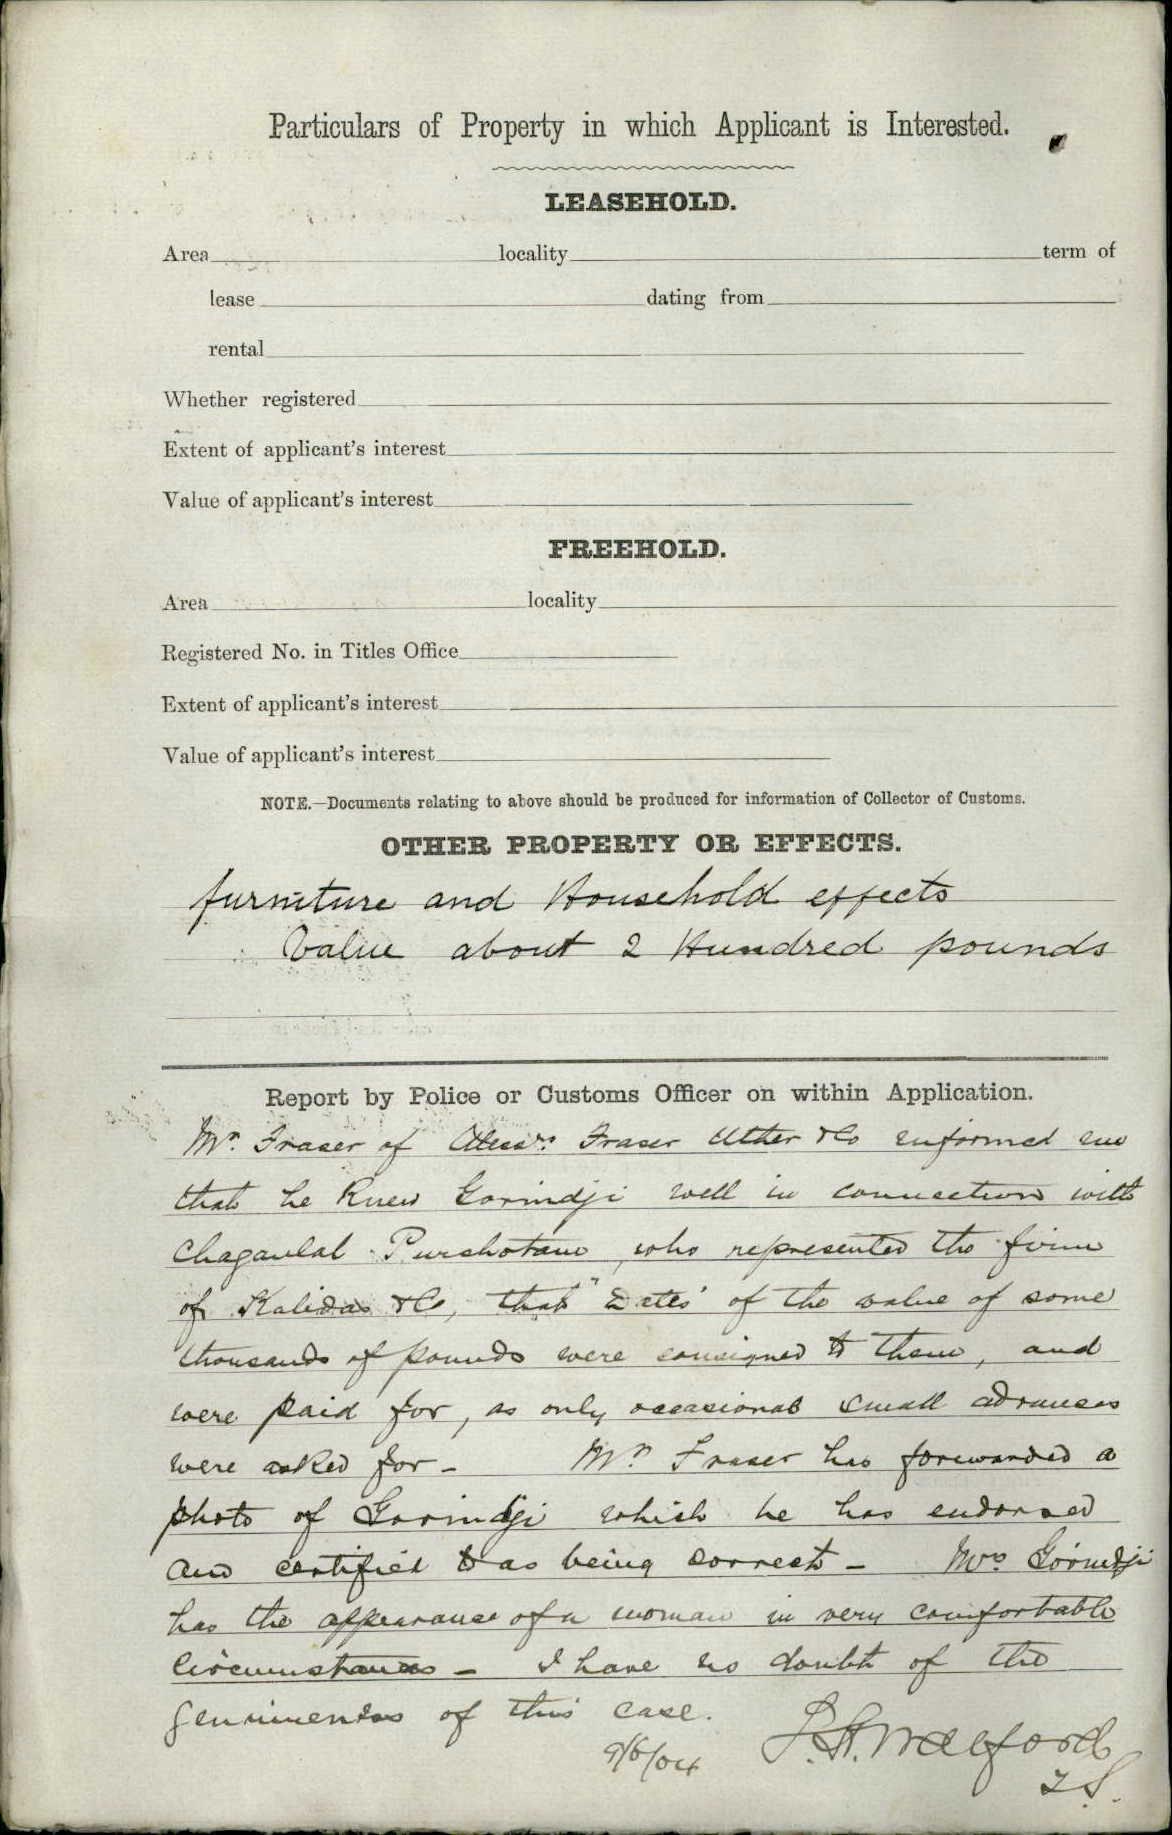 Particulars of Property in which Applicant is Interested.
LEASEHOLD.
Area locality term of
lease dating from
rental
Whether registered
Extent of applicant's interest
Value of applicant's interest
FREEHOLD.
Area locality
Registered No. in Titles Office
Extent of applicant's interest
Value of applicant's interest
NOTE.—Documents relating to above should be produced for information of Collector of Customs.
OTHER PROPERTY OR EFFECTS.
furniture and Household effects
Value about 2 Hundred pounds
Report by Police or Customs Officer on within Application.
Mr. Fraser of Messrs. Fraser Uther & Co informed me
that he knew Gorindji well in connection with
Chaganlal Purshotam, who represented the firm
of Kalidas & Co, that "Dates" of the value of some
thousands of pounds were consigned to them, and
were paid for, as only occasional small advances
were asked for - Mr. Fraser has forwarded a
photo of Gorindji which he has endorsed
and certified to as being correct - Mrs Gorindji
has the appearance of a woman in very comfortable
circumstances - I have no doubt of the
genuineness of this case.
9/6/04 Walford